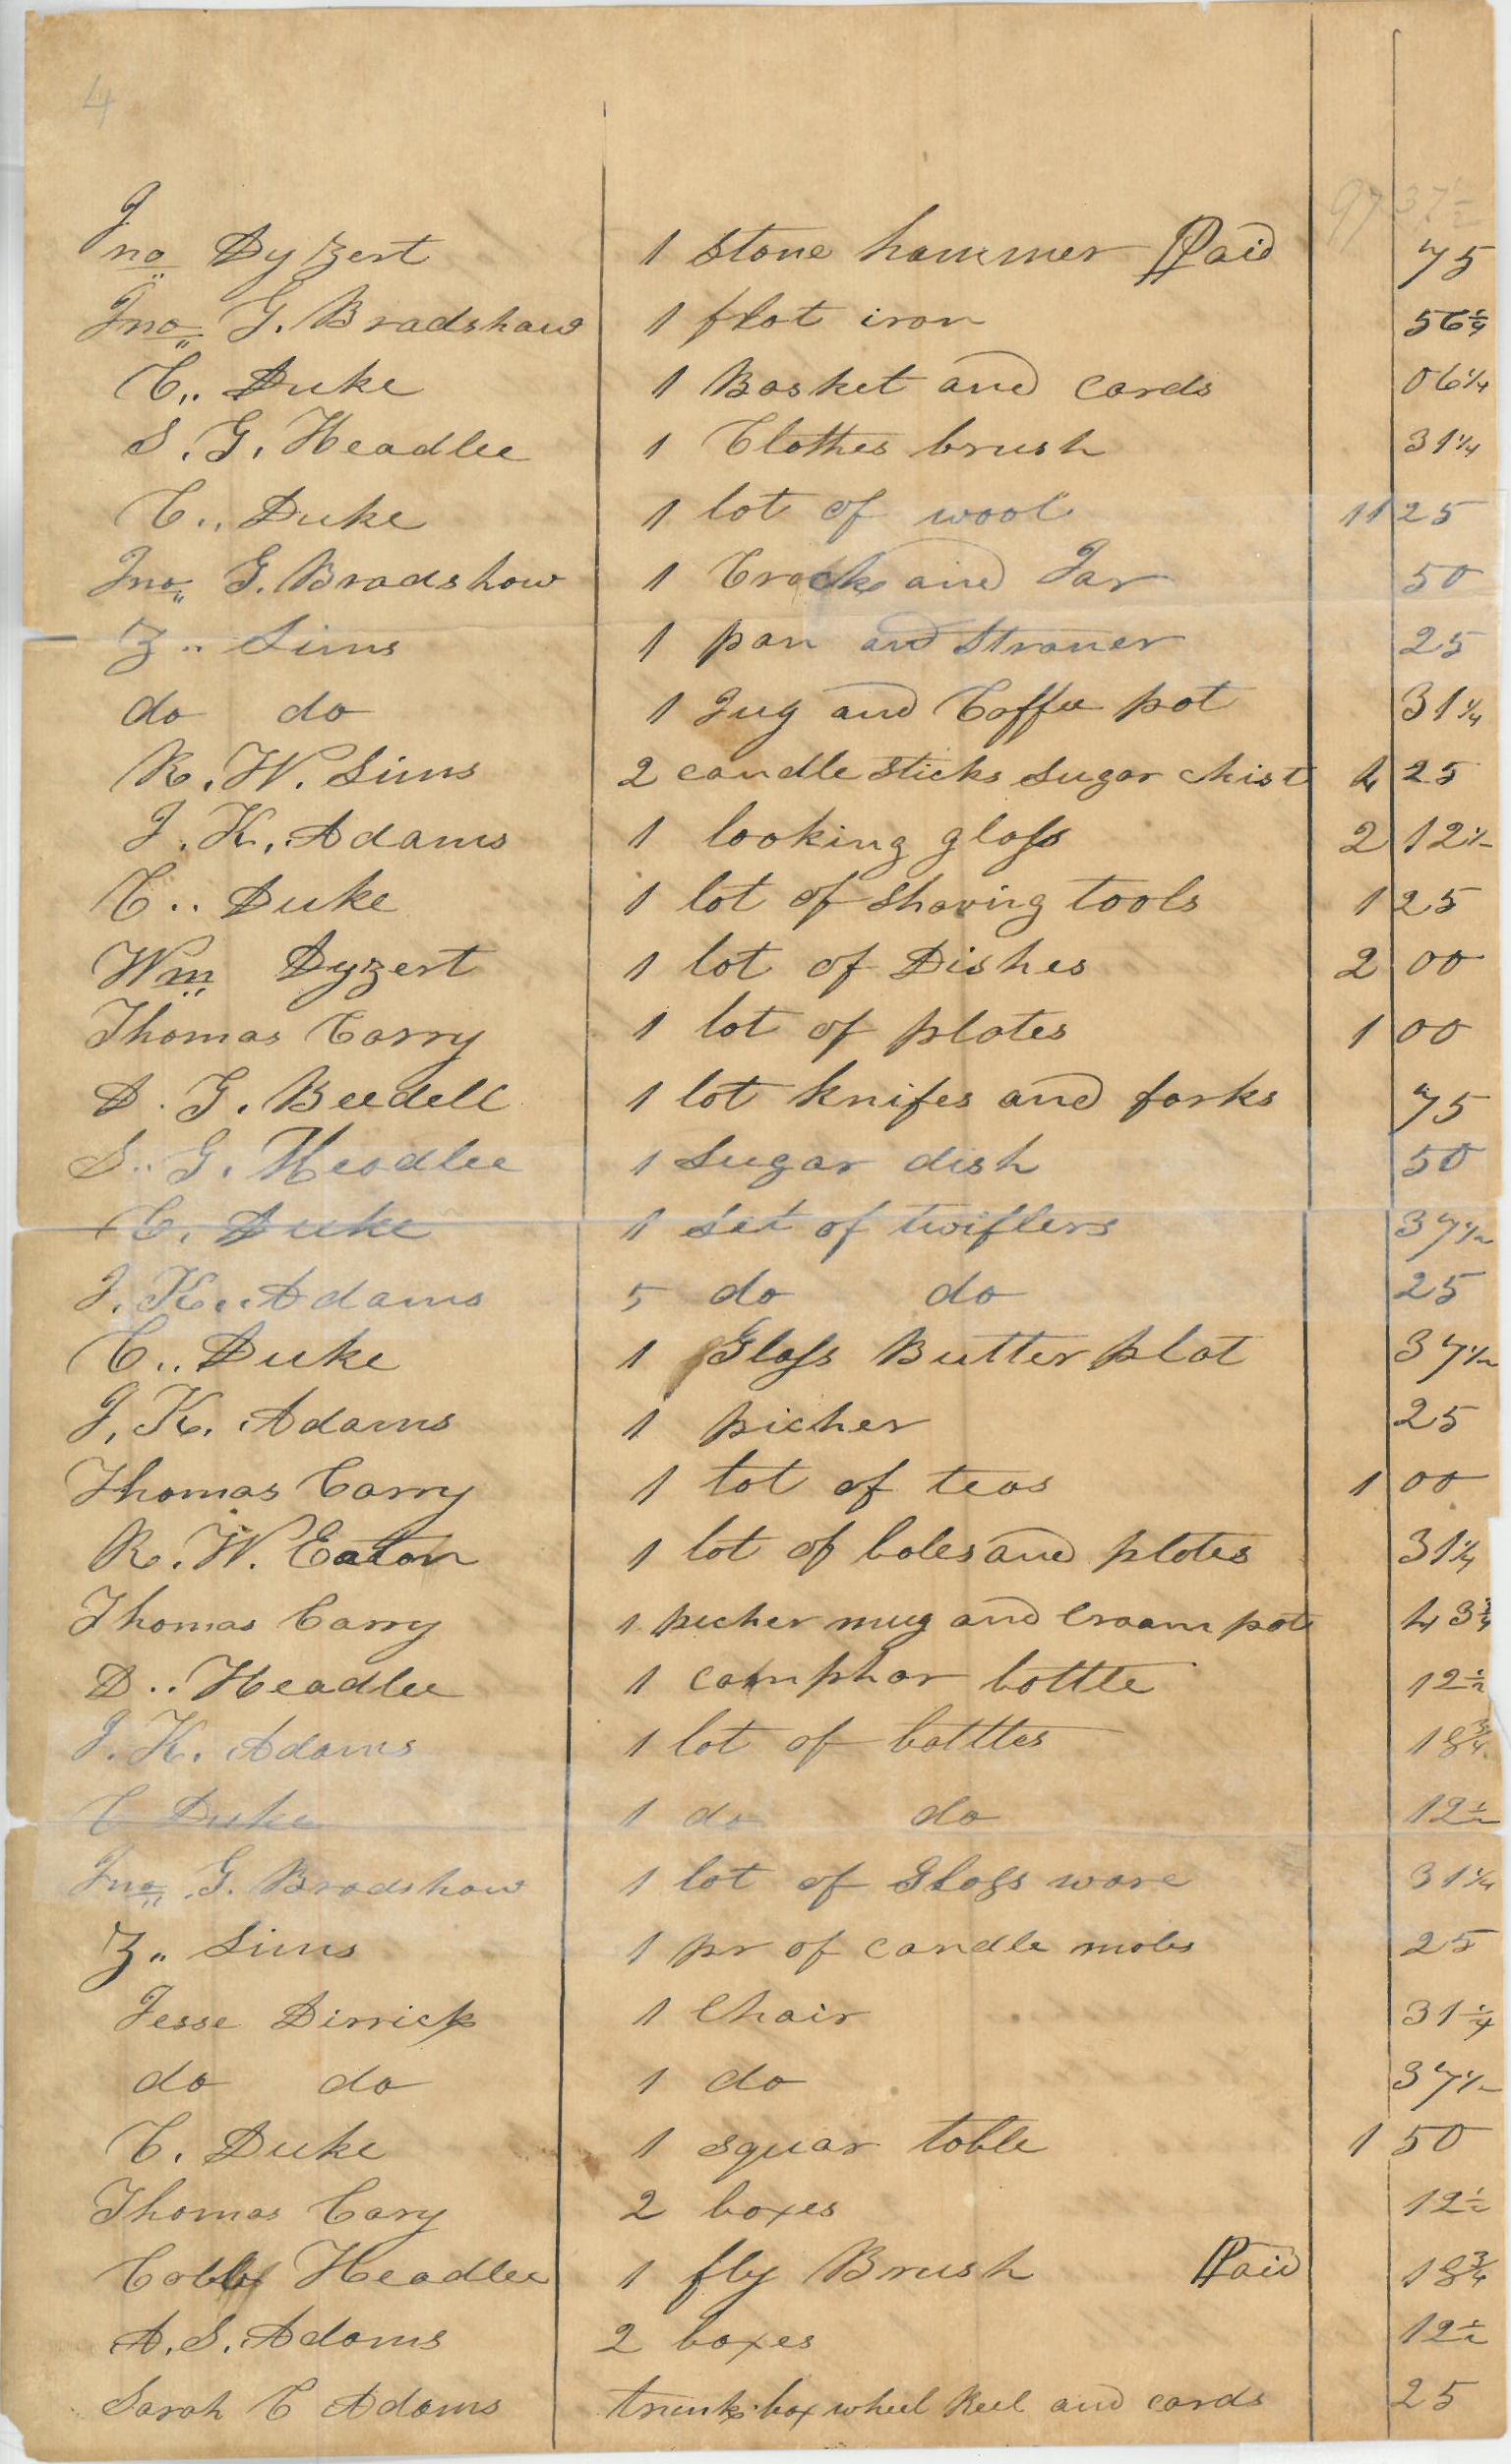 4
97 37½
Jno Dyzert 1 stone hammer Paid 75
Jno G. Bradshaw 1 flat iron 56¼
C.. Duke 1 Basket and cards 06¼
S. G. Headlee 1 Clothes brush 31¼
C.. Duke 1 lot of wool 11 25
Jno G. Bradshaw 1 Crock and Jar 50
Z.. Sims 1 pan and straner 25
do do 1 Jug and Coffee pot 31¼
R. W. Sims 2 candle sticks sugar chist 4 25
J. K. Adams 1 looking glass 2 12½
C.. Duke 1 lot of shaving tools 1 25
Wm Dyzert 1 lot of Dishes 2 00
Thomas Carry 1 lot of plates 1 00
D. G. Beedell 1 lot knifes and forks 75
S.. G. Headlee 1 sugar dish 50
C. Duke 1 set of twiflers 37½
J. K.. Adams 5 do do 25
C.. Duke 1 Glass Butter plat 37½
J. K. Adams 1 picher 25
Thomas Carry 1 lot of teas 1 00
R. W. Eaton 1 lot of boles and plates 31¼
Thomas Carry 1 picher mug and Craam pot 43¾
D.. Headlee 1 camphor bottle 12½
J. K. Adams 1 lot of bottles 18¾
C Duke 1 do do 12½
Jno G. Bradshaw 1 lot of Glass ware 31¼
Z.. Sims 1 pr of candle mols 25
Jesse Dirrick 1 Chair 31¼
do do 1 do 37½
C. Duke 1 squar table 1 50
Thomas Cary 2 boxes 12½
Headlee 1 fly Brush Paid 18¾
A. S. Adams 2 boxes 12½
Sarah C Adams trunk box wheel Reel and cards 25